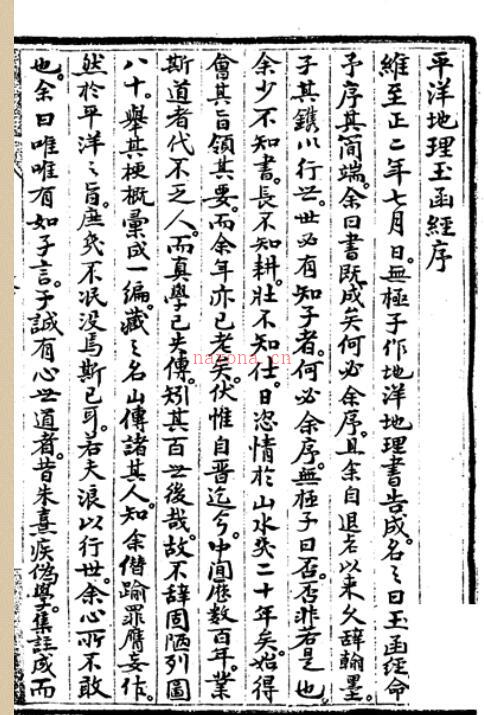 平洋地理玉函經序
維至正二年七月日。無極子作地洋地理書告成。名之曰玉函經命
予序其簡端。余曰書既成矣何必余序。且余自退老以來久辭翰墨。
子其鐫以行世。世必有知子者。何必余序。無極子曰否。否非若是也。
余少不知書。長不知耕。壯不知仕。日恣情於山水二十年矣。始得
會其旨領其要。而余年亦已老矣。伏惟自晋迄今。中間歷數百年。業
斯道者代不乏人。而真學已失傳。矧其百世後哉。故不辭固陋列圖
八十。舉其梗概彙成一編。藏之名山傳諸其人。知余僭踰罪膺妄作。
然於平洋之旨。庶幾不泯没焉斯已可。若夫浪以行世。余心所不敢
也。余曰唯唯有如子言。子誠有心世道者。昔朱熹疾偽學。集註成而